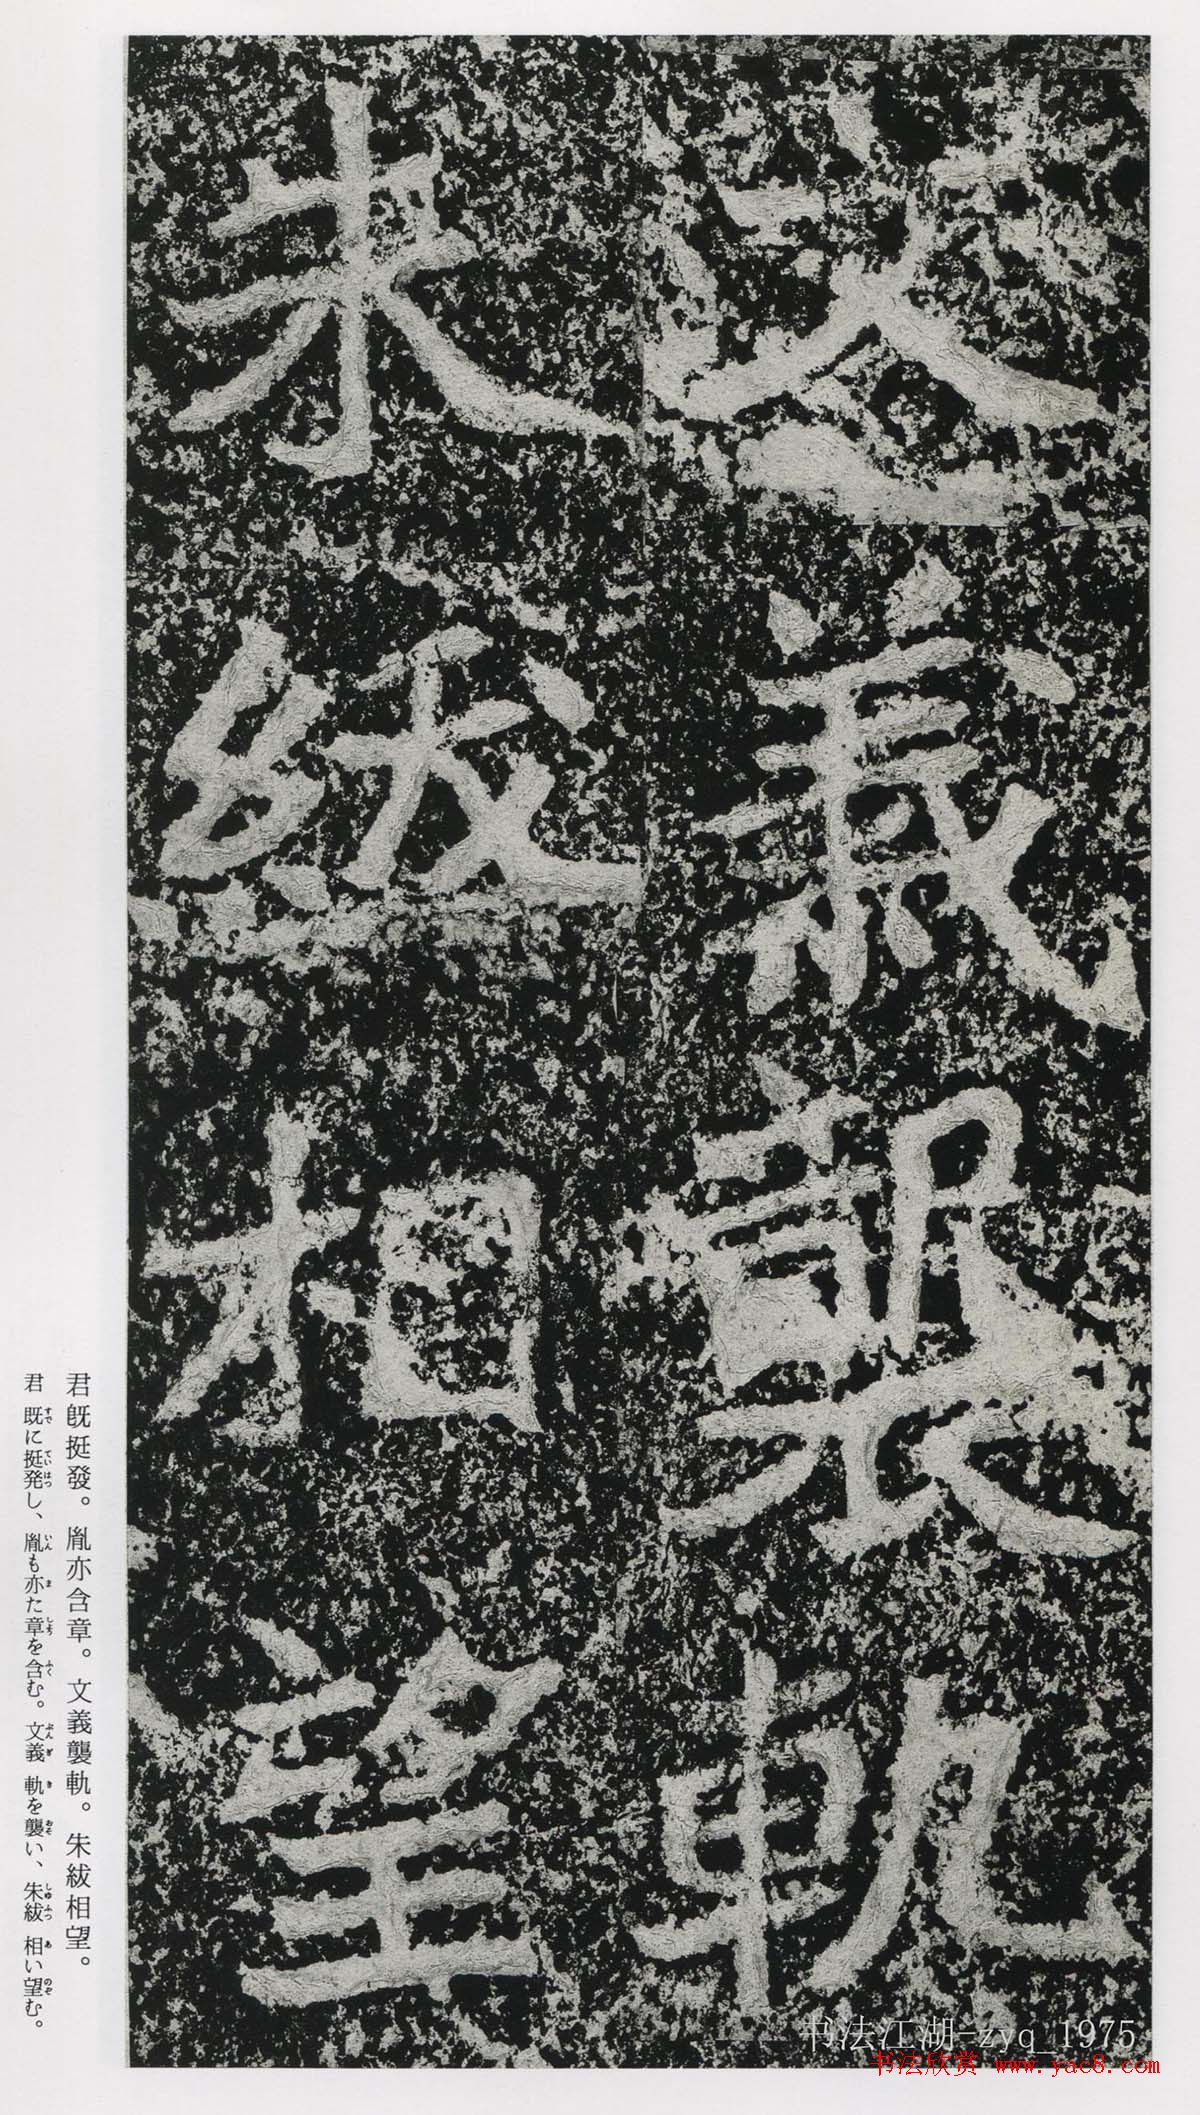 文義襲軌
朱紱相望
君既挺發。胤亦含章。文義襲軌。朱紱相望。
君 既に挺発し、胤も亦た章を含む。文義 軌を襲い、朱紱 相い望む。
书法江湖-zyq_1975
书法欣赏 www.yac8.com